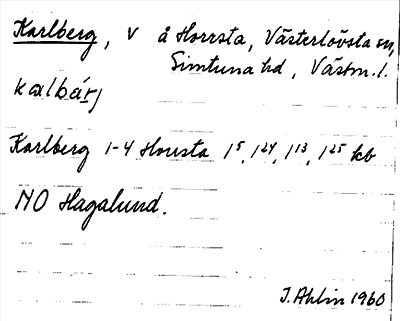 Karlberg, v å Horrsta, Västerlövsta sn,
Simtuna hd, Västm. l.
kalbárj
Karlberg 1-4 Horrsta 1⁵, 1²⁴, 1¹³, 1²⁵ kb
NO Hagalund.
J. Ahlin 1960